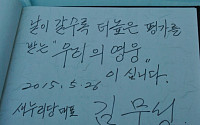 날이 갈수록 더 높은 평가를
받는 "우리의 영웅"
이십니다.
2015. 5. 26
새누리당대표 김무성